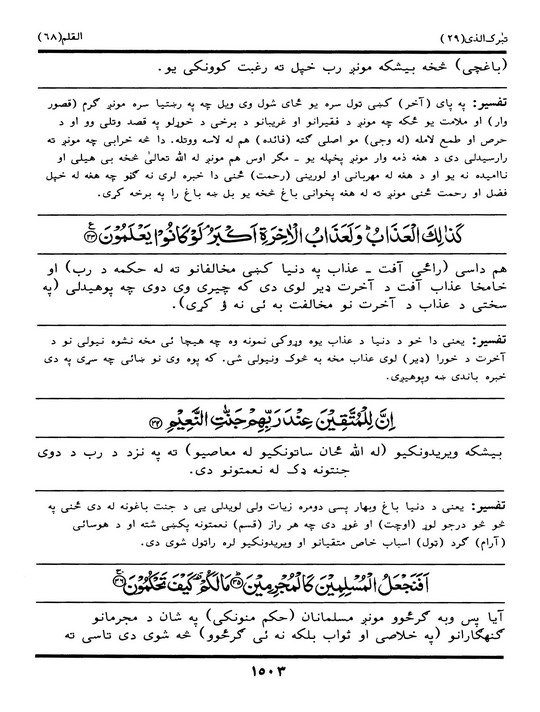 تبٰرک الذی(٢٩)
القلم(٦٨)
(باغچې) څخه بیشکه مونږ رب خپل ته رغبت کوونکی یو.
تفسیر: په پای (آخر) کښی ټول سره یو ځای شول وی ویل چه په رښتیا سره مونږ ګرم (قصور
وار) او ملامت یو ځکه چه مونږ د فقیرانو او غریبانو د برخی د خوړلو په قصد وتلی وو او د
حرص او طمع لامله (له وجی) مو اصلی ګټه (فائده) هم له لاسه ووتله. دا څه خرابی چه مونږ ته
رارسیدلی دی د هغه ذمه وار مونږ پخپله یو ـ مګر اوس هم مونږ له الله تعالیٰ څخه بی هیلی او
ناامیده نه یو او د هغه له مهربانی او لورینی (رحمت) څنی دا خبره لری نه ګڼو چه هغه له خپل
فضل او رحمت څنی مونږ ته له هغه پخوانی باغ څخه یو بل ښه باغ را په برخه کړی.
كَذٰلِكَ الْعَذَابُ ؕ وَلَعَذَابُ الْاٰخِرَةِ اَكْبَرُ ۘ لَوْ كَانُوْا يَعْلَمُوْنَ ﴿٣٣﴾
هم داسی (راځی آفت ـ عذاب په دنیا کښی مخالفانو ته له حکمه د رب) او
خامخا عذاب آفت د آخرت ډیر لوی دی که چیری وی دوی چه پوهیدلی (په
سختی د عذاب د آخرت نو مخالفت به ئی نه ؤ کړی).
تفسیر: یعنی دا خو د دنیا د عذاب یوه وړوکی نمونه وه چه هیچا ئی مخه نشوه نیولی نو د
آخرت د خورا (ډیر) لوی عذاب مخه به څوک ونیولی شی. که پوه وی نو ښائی چه سړی په دی
خبره باندی ښه وپوهیږی.
اِنَّ لِلْمُتَّقِيْنَ عِنْدَ رَبِّهِمْ جَنّٰتِ النَّعِيْمِ ﴿٣٤﴾
بیشکه ویریدونکیو (له الله ځان ساتونکیو له معاصیو) ته په نزد د رب د دوی
جنتونه ډک له نعمتونو دی.
تفسیر: یعنی د دنیا باغ وبهار پسی دومره زیات ولی لویدلی یی د جنت باغونه له دی څنی په
څو څو درجو لوړ (اوچت) او غوړ دی چه هر راز (قسم) نعمتونه پکښی شته او د هوسائی
(آرام) ګرد (ټول) اسباب خاص متقیانو او ویریدونکیو لره راټول شوی دی.
اَفَنَجْعَلُ الْمُسْلِمِيْنَ كَالْمُجْرِمِيْنَ ﴿٣٥﴾ مَا لَكُمْ ۥ كَيْفَ تَحْكُمُوْنَ ﴿٣٦﴾
آیا پس وبه ګرځوو مونږ مسلمانان (حکم منونکی) په شان د مجرمانو
ګنهګارانو (په خلاصی او ثواب بلکه نه ئی ګرځوو) څه شوی دی تاسی ته
١٥٠٣